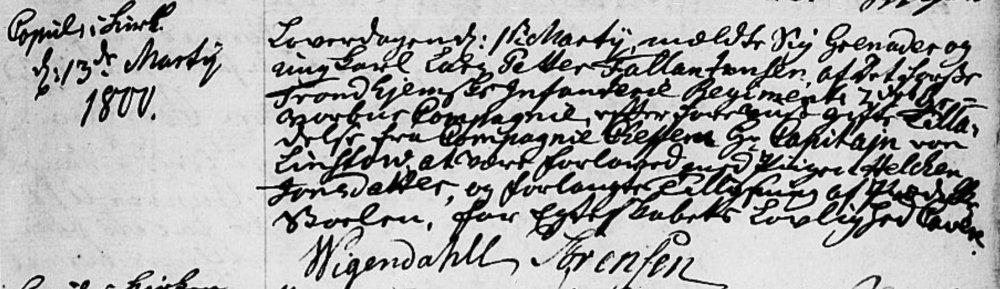 Copul: i Kirk.
d: 13de Martij
1800.
Løverdagen d: 1st Martij, mældte Sig Grenader og
ung Karl Lars Petter Fallan Jensen af Det
Trondhjemske Infanterie Regiments
Compagnie, efter foreviiste Tilla-
delse fra Compagnie Cheffen Hr Capitain von
Lischtow, at være forlovet med Pigen
Jonsdatter, og forlangte Tillysning af Prædike
Stoelen, for Egteskabets Lovlighed Cavere
Wigendahll Sørensen